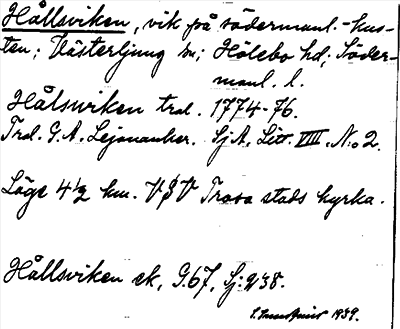 Hållsviken, vik på södermanl.-kus-
ten; Västerljung sn; Hölebo hd; Söder-
manl. l.
Hålsviken trol. 1774-76.
Trol. G. A. Lejonancker. SjA, Litt. VIII, No 2.
Läge 4½ km. VSV Trosa stads kyrka.
Hållsviken ek, G.67, Sj: 238.
1939.